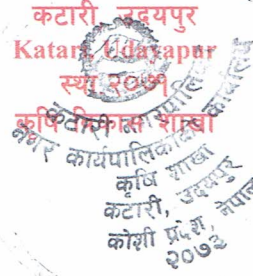 कटारी, उदयपुर
Katari, Udayapur
स्था. २०७१
कृषि विकास शाखा
कटारी नगरपालिका
नगर कार्यपालिकाको कार्यालय
कृषि शाखा
कटारी, उदयपुर
कोशी प्रदेश, नेपाल
२०७३